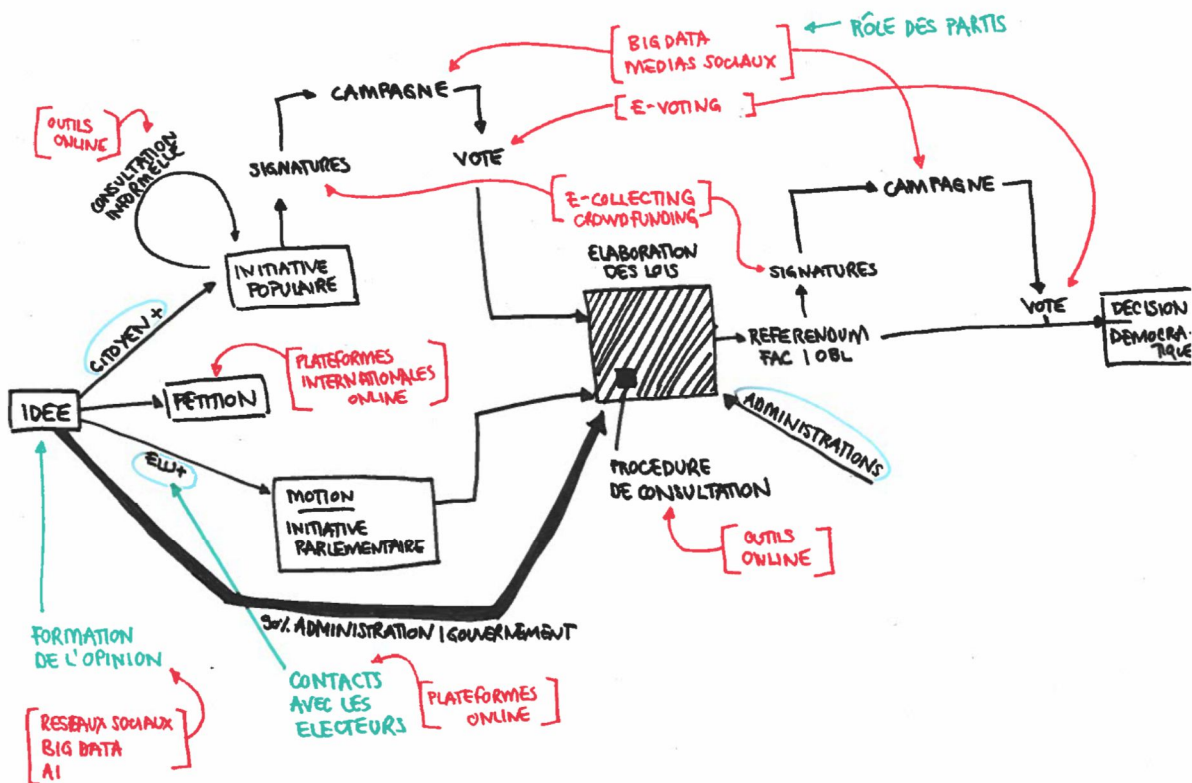 [BIG DATA
MEDIAS SOCIAUX]
RÔLE DES PARTIS
CAMPAGNE
[E-VOTING]
[OUTILS
ONLINE]
CONSULTATION
INFORMELLE
SIGNATURES
VOTE
[E-COLLECTING
CROWDFUNDING]
CAMPAGNE
INITIATIVE
POPULAIRE
ELABORATION
DES LOIS
SIGNATURES
VOTE
DECISION
DEMOCRA-
TIQUE
REFERENDUM
FAC | OBL
CITOYEN+
[PLATEFORMES
INTERNATIONALES
ONLINE]
IDEE
PETITION
ELU+
ADMINISTRATIONS
MOTION
INITIATIVE
PARLEMENTAIRE
PROCEDURE
DE CONSULTATION
[OUTILS
ONLINE]
90% ADMINISTRATION | GOUVERNEMENT
FORMATION
DE L'OPINION
CONTACTS
AVEC LES
ELECTEURS
[PLATEFORMES
ONLINE]
[RESEAUX SOCIAUX
BIG DATA
AI]